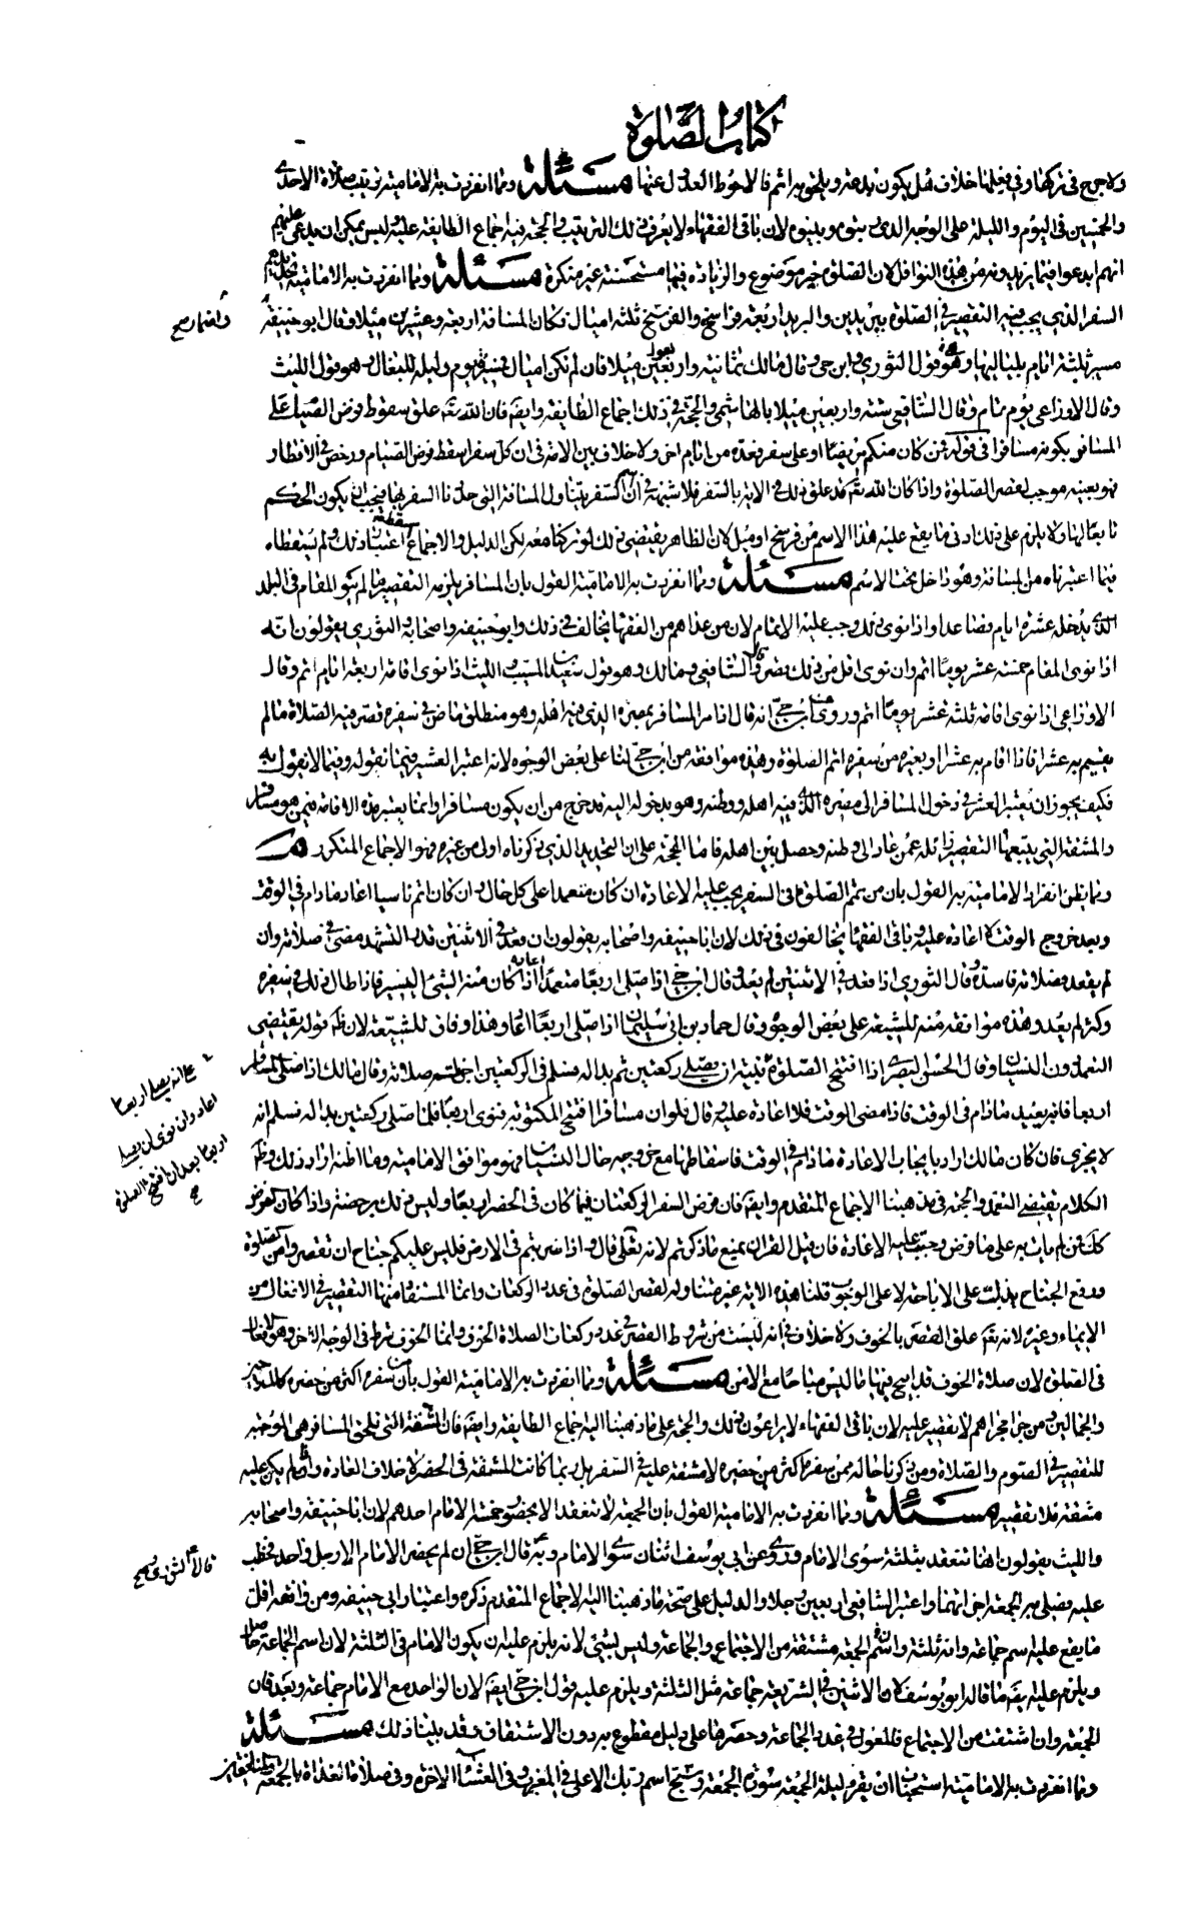 كتاب الصلوة
ولا حرج في تركها وفي فعلها خلاف هل يكون بدعة ويلحق به اثم فالاحوط العدول عنها مسئلة ومما انفردت به الامامية ترتيب صلاة الاحدى
والخمسين في اليوم والليلة على الوجه الذي بينوه لان باقي الفقهاء لا يعرف ذلك الترتيب والحجة فيه اجماع الطايفة عليه وليس يمكن ان يدعى عليهم
انهم ابدعوا فيما يزيدونه من هذه النوافل لان الصلوة خير موضوع والزيادة فيها مستحسنة غير منكرة مسئلة ومما انفردت به الامامية تحديدهم
السفر الذي يجب فيه التقصير في الصلوة ببريدين والبريد اربعة فراسخ والفرسخ ثلثة اميال فكان المسافة اربعة وعشرين ميلا وقال ابو حنيفة
واصحابه صح
مسير ثلثة ايام بلياليها وهو قول الثوري وابن حي وقال مالك ثمانية واربعين ميلا فان لم تكن اميال فمسيرة يوم وليلة للبغال وهو قول الليث
وقال الاوزاعي يوم تام وقال الشافعي ستة واربعين ميلا بالهاشمي والحجة في ذلك اجماع الطايفة وايضا فان الله تعالى علق سقوط فرض الصيام على
المسافر بكونه مسافرا في قوله فمن كان منكم مريضا او على سفر فعدة من ايام اخر ولا خلاف بين الامة في ان كل سفر اسقط فرض الصيام ورخص في الافطار
فهو بعينه موجب لقصر الصلوة واذا كان الله تعالى قد علق ذلك في الاية بالسفر فلا شبهة في ان اسم السفر يتناول المسافة التي حددنا السفر بها فيجب ان يكون الحكم
تابعا لها ولا يلزم على ذلك ادنى ما يقع عليه هذا الاسم من فرسخ او ميل لان الظاهر يقتضي ذلك لو تركنا معه لكن الدليل والاجماع اسقطا اعتبار ذلك ولم يسقطاه
فيما اعتبرناه من المسافة وهو داخل تحت الاسم مسئلة ومما انفردت به الامامية القول بان المسافر يلزمه التقصير ما لم ينو المقام في البلد
الذي يدخله عشرة ايام فصاعدا واذا نوى ذلك وجب عليه الاتمام لان من عداهم من الفقهاء يخالف في ذلك وابو حنيفة واصحابه والثوري يقولون انه
اذا نوى المقام خمسة عشر يوما اتم وان نوى اقل من ذلك قصر وقال الشافعي ومالك وهو قول سعيد بن المسيب والليث اذا نوى اقامة اربعة ايام اتم وقال
الاوزاعي اذا نوى اقامة ثلثة عشر يوما اتم وروي عن ابن حي انه قال اذا مر المسافر بمصره الذي فيه اهله وهو منطلق ماض في سفره قصر فيه الصلاة ما لم
يقم به عشرا فاذا اقام به عشرا او بغيره من سفره اتم الصلوة وهذه موافقة من ابن حي لنا على بعض الوجوه لانه اعتبر العشر فيما نقوله وفيما لا نقول به
فكيف يجوز ان يعتبر العشر في دخول المسافر الى مصره الذي فيه اهله ووطنه وهو بدخوله اليه قد خرج من ان يكون مسافرا وانما يعتبر مدة الاقامة فيمن هو مسافر
والمشقة التي يتبعها التقصير زائلة عمن عاد الى وطنه وحصل بين اهله فاما الحجة على ان التحديد الذي ذكرناه اولى من غيره فهو الاجماع المتكرر مسـ
ومما يظن انفراد الامامية به القول بان من تمم الصلوة في السفر يجب عليه الاعادة ان كان متعمدا على كل حال وان كان اتم ناسيا اعاد ما دام في الوقت
وبعد خروج الوقت لا اعادة عليه وباقي الفقهاء يخالفون في ذلك لان ابا حنيفة واصحابه يقولون ان قعد في الاثنتين قدر التشهد مضى في صلاته وان
لم يقعد فصلاته فاسدة وقال الثوري اذا قعد في الاثنتين لم يعد وقال ابن حي اذا صلى اربعا متعمدا اعاد اذا كان منه الشيء اليسير فاذا طال ذلك في سفره
وكثر لم يعد وهذه موافقة منه للشيعة على بعض الوجوه وقال حماد بن ابي سليمان اذا صلى اربعا اعاد وهذا وفاق للشيعة لان ظاهر قوله يقتضي
التعمد دون النسيان وقال الحسن البصري اذا افتتح الصلوة بنية ان يصلي ركعتين ثم بدا له فسلم في الركعتين اجزته صلاته وقال مالك اذا صلى المسافر
على انه يصلي اربعا
اعاد وان نوى ان يصلي
اربعا بعد ان افتتح الصلوة
صح
اربعا فانه يعيد ما دام في الوقت فاذا مضى الوقت فلا اعادة عليه وقال فلو ان مسافرا افتتح المكتوبة فنوى اربعا فلما صلى ركعتين بدا له فسلم انه
لا يجزي فان كان مالك اراد بايجاب الاعادة ما دام في الوقت فاسقاطها مع خروجه حال النسيان فهو موافق الامامية وما اظنه اراد ذلك وظاهر
الكلام يقتضي التعمد والحجة في مذهبنا الاجماع المتقدم وايضا فان فرض السفر الركعتان فيما كان في الحضر اربعا وليس ذلك برخصة واذا كان الفرض
كذلك فمن لم يات به على ما فرض وجبت عليه الاعادة فان قيل القران يمنع ما ذكرتم لانه تعالى قال واذا ضربتم في الارض فليس عليكم جناح ان تقصروا من الصلوة
ورفع الجناح يدل على الاباحة لا على الوجوب قلنا هذه الاية غير متناولة لقصر الصلوة في عدد الركعات وانما المستفاد منها التقصير في الافعال من
الايماء وغيره لانه تعالى علق القصر بالخوف ولا خلاف في انه ليست من شروط القصر في عدد ركعات الصلاة الخوف وانما الخوف شرط في الوجه الاخر وهو الافعال
في الصلوة لان صلاة الخوف قد ابيح فيها ما ليس مباحا مع الامن مسئلة ومما انفردت به الامامية القول بان من سفره اكثر من حضره كالملاحين
والجمالين ومن جرى مجراهم لا تقصير عليه لان باقي الفقهاء لا يراعون ذلك والحجة على ما ذهبنا اليه اجماع الطايفة وايضا فان المشقة التي تلحق المسافر هي الموجبة
للتقصير في الصوم والصلاة ومن ذكرنا حاله ممن سفره اكثر من حضره لا مشقة عليه في السفر بل ربما كانت المشقة في الحضر لانه خلاف العادة واذا لم يكن عليه
مشقة فلا تقصير مسئلة ومما انفردت به الامامية القول بان الجمعة لا تنعقد الا بحضور خمسة الامام احدهم لان ابا حنيفة واصحابه
والليث يقولون انها تنعقد بثلثة سوى الامام وروي عن ابي يوسف اثنان سوى الامام وبه قال ابن حي ان لم يحضر الامام الا رجل واحد فخطب
قال الثوري صح
عليه وصلى به الجمعة اجزاتهما واعتبر الشافعي اربعين رجلا والدليل على صحة ما ذهبنا اليه الاجماع المتقدم ذكره واعتبار ابي حنيفة ومن وافقه اقل
ما يقع عليه اسم جماعة وانه ثلثة وان اسم الجمعة مشتقة من الاجتماع والجماعة وليس بشيء لانه يلزم عليه ان يكون الامام في الثلثة لان اسم الجماعة حاصل
ويلزم عليه ايضا ما قاله ابو يوسف كان الاثنين في الشريعة جماعة مثل الثلثة ويلزم عليه قول ابن حي ايضا لان الواحد مع الامام جماعة وبعد فان
الجمعة وان اشتقت من الاجتماع فالمعول في عدد الجماعة وحصرها على دليل مقطوع به دون الاشتقاق وقد بينا ذلك مسئلة
ومما انفردت به الامامية استحباب ان يقرء ليلة الجمعة سورة الجمعة وسبح اسم ربك الاعلى في المغرب وفي العشاء الاخرة وفي صلاة الغداة بالجمعة والمنافقين